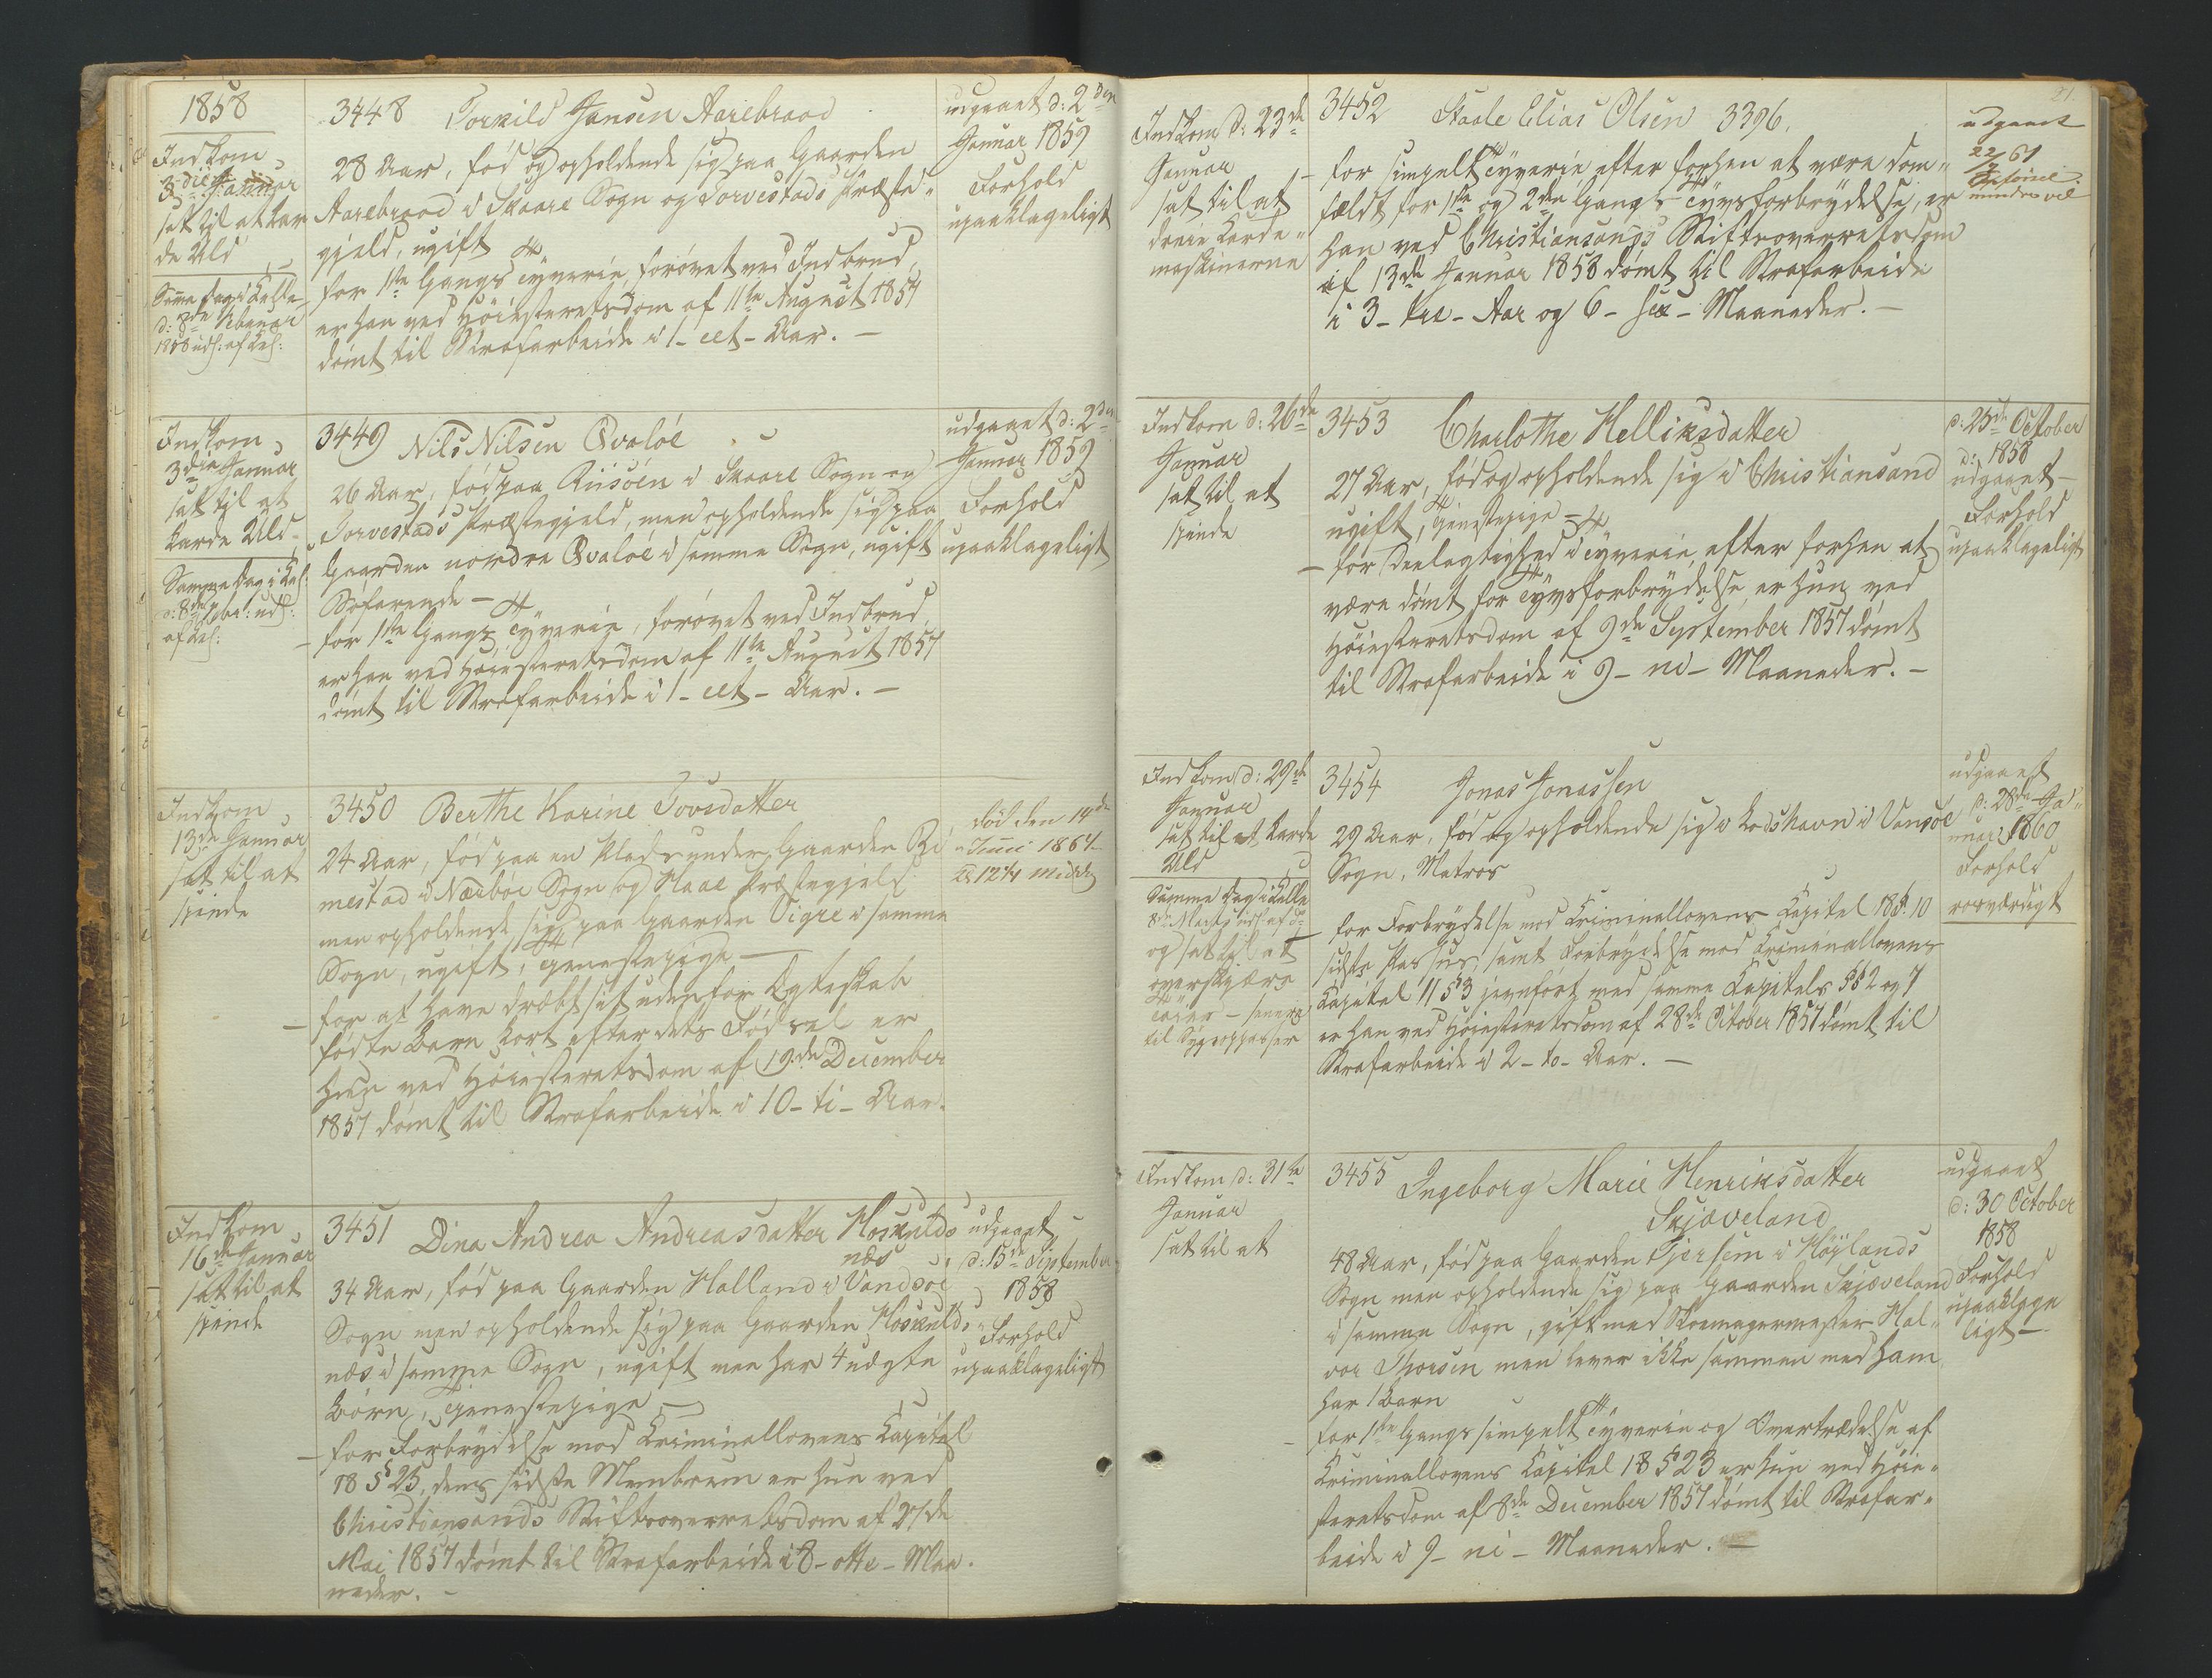 1858
Indkom
3die Januar
sat til at kar
de Uld
Samme dag i Celle
d: 8de Febuar
1858 uds: af Cel:
3448 Torkild Jansen Aarebrood
28 Aar, fød og opholdende sig paa Gaarden
Aarebrood i Skaare Sogn og Torvestads Præste-
gjeld, ugift
for 1ste Gangs Tyverie, forøvet ved Indbrud,
er han ved Høiesteretsdom af 11te August 1857
dømt til Strafarbeide i 1 - eet - Aar. -
udgaaet d: 2den
Januar 1859
Forhold
upaaklageligt
Indkom
3die Januar
sat til at
karde Uld
Samme dag i Cel:
d: 8de Febr: uds:
af Cel:
3449 Nils Nilsen Qvaløe
26 Aar, fød paa Riisøen i Skaare Sogn og
Torvestads Præstegjeld, men opholdende sig paa
Gaarden nordre Qvaløe i samme Sogn, ugift
Søfarende -
- for 1ste Gangs Tyverie, forøvet ved Indbrud,
er han ved Høiesteretsdom af 11te August 1857
dømt til Strafarbeide i 1 - eet - Aar. -
udgaaet d: 2den
Januar 1859
Forhold
upaaklageligt
Indkom
13de Januar
sat til at
spinde
3450 Berthe Karine Tovsdatter
24 Aar, fød paa en Plads under Gaarden Ri
mestad i Nærbøe Sogn og Haae Præstegjeld
men opholdende sig paa Gaarden Tigre i samme
Sogn, ugift, Tjenestepige -
- for at have dræbt sit udenfor Ægteskab
fødte Barn kort efter dets Fødsel er
hun ved Høiesteretsdom af 19de December
1857 dømt til Strafarbeide i 10 - ti - Aar.
død den 14de
Juni 1864
Kl 12 1/4 Middag
Indkom
16de Januar
sat til at
spinde
3451 Dina Andrea Andreasdatter Hoskulds
næs
34 Aar, fød paa Gaarden Halland i Vandsøe
Sogn men opholdende sig paa Gaarden Hoskulds-
næs i samme Sogn, ugift men har 4 uægte
Børn, Tjenestepige -
- for Forbrydelse mod Criminallovens Capitel
18 § 25, dens sidste Membrum er hun ved
Christiansands Stiftsoverretsdom af 27de
Mai 1857 dømt til Strafarbeide i 8 - otte - Maa-
neder. -
udgaaet
d: 15de September
1858
Forhold
upaaklageligt
21.
Indkom d: 23de
Januar
sat til at
dreie Karde-
maskinerne
3452 Staale Elias Olsen 3396.
- for simpelt Tyverie efter forhen at være dom-
fældt for 1ste og 2den Gangs Tyvsforbrydelse, er
han ved Christiansands Stiftsoverretsdom
af 13de Januar 1858 dømt til Strafarbeide
i 3 - tre - Aar og 6 - sex - Maaneder. -
udgaaet
22/7 61
mindre vel
Indkom d: 26de
Januar
sat til at
spinde
3453 Charlothe Helliksdatter
27 Aar, fød og opholdende sig i Christiansand
ugift, Tjenestepige -
- for Deelagtighed i Tyverie, efter forhen at
være dømt for Tyvsforbrydelse er hun ved
Høiesteretsdom af 9de September 1857 dømt
til Strafarbeide i 9 - ni - Maaneder. -
d: 25de October
1858
udgaaet -
Forhold
upaaklageligt
Indkom d: 29de
Januar
sat til at karde
Uld
Samme dag i Celle
8de Marts uds: af do
og sat til at
overskjære
Tøier - senere
til Sygeopasser
3454 Jonas Jonassen
29 Aar, fød og opholdende sig i Loshavn i Vansøe
Sogn, Matros
- for Forbrydelse mod Criminallovens Capitel 18 § 10
sidste Passus, samt Forbrydelse mod Criminallovens
Capitel 11 § 3 jevnført med samme Capitels §§ 2 og 7
er han ved Høiesteretsdom af 28de October 1857 dømt til
Strafarbeide i 2 - to - Aar. -
udgaaet
d: 28de Ja-
nuar 1860
Forhold
rosværdigt
Indkom d: 31te
Januar
sat til at
3455 Ingeborg Marie Henriksdatter
Skjæveland
48 Aar, fød paa Gaarden Gjersem i Høylands
Sogn men opholdende sig paa Gaarden Skjæveland
i samme Sogn, gift med Skomagermester Hal-
vor Thorsen men lever ikke sammen med ham,
har 1 Barn
- for 1ste Gangs simpelt Tyverie og Overtrædelse af
Criminallovens Capitel 18 § 23 er hun ved Høie-
steretsdom af 8de December 1857 dømt til Strafar-
beide i 9 - ni - Maaneder. -
udgaaet
d: 30 October
1858
Forhold
upaaklage
ligt -